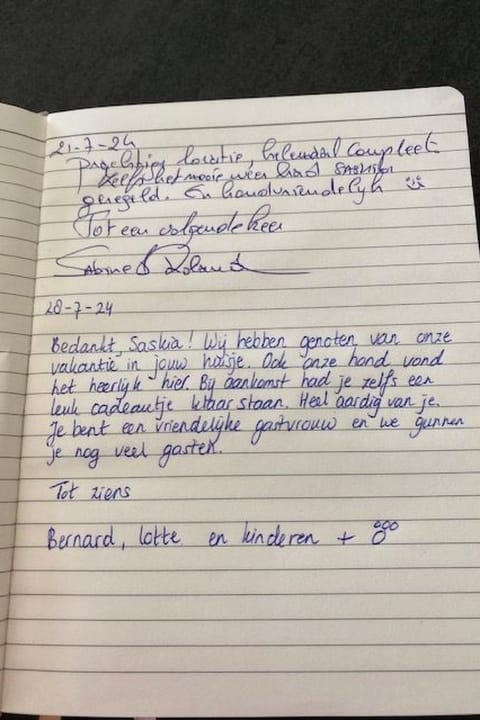 21-7-24
Prachtige locatie, helemaal compleet
zelfs het mooie weer had Saskia
geregeld. En hondvriendelijk
Tot een volgende keer
Sabine & Roland
28-7-24
Bedankt, Saskia! Wij hebben genoten van onze
vakantie in jouw huisje. Ook onze hond vond
het heerlijk hier. Bij aankomst had je zelfs een
leuk cadeautje klaar staan. Heel aardig van je.
Je bent een vriendelijke gastvrouw en we gunnen
je nog veel gasten.
Tot ziens
Bernard, Lotte en kinderen +